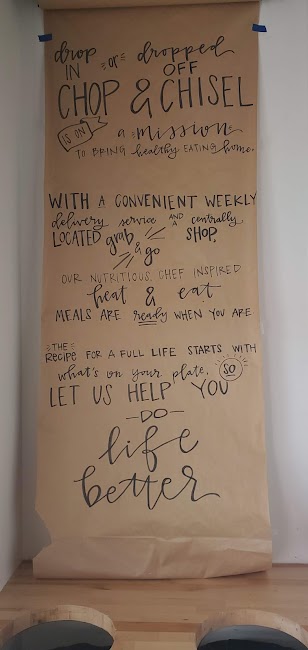 drop -or- dropped
IN OFF
CHOP & CHISEL
IS ON a mission
TO BRING healthy EATING home.
WITH A CONVENIENT WEEKLY
delivery service AND a centrally
LOCATED grab & go SHOP,
OUR NUTRITIOUS, CHEF INSPIRED
heat & eat
MEALS ARE ready WHEN YOU ARE
THE
Recipe FOR A FULL LIFE STARTS WITH
what's on your plate, SO
LET US HELP YOU
-DO-
life
better